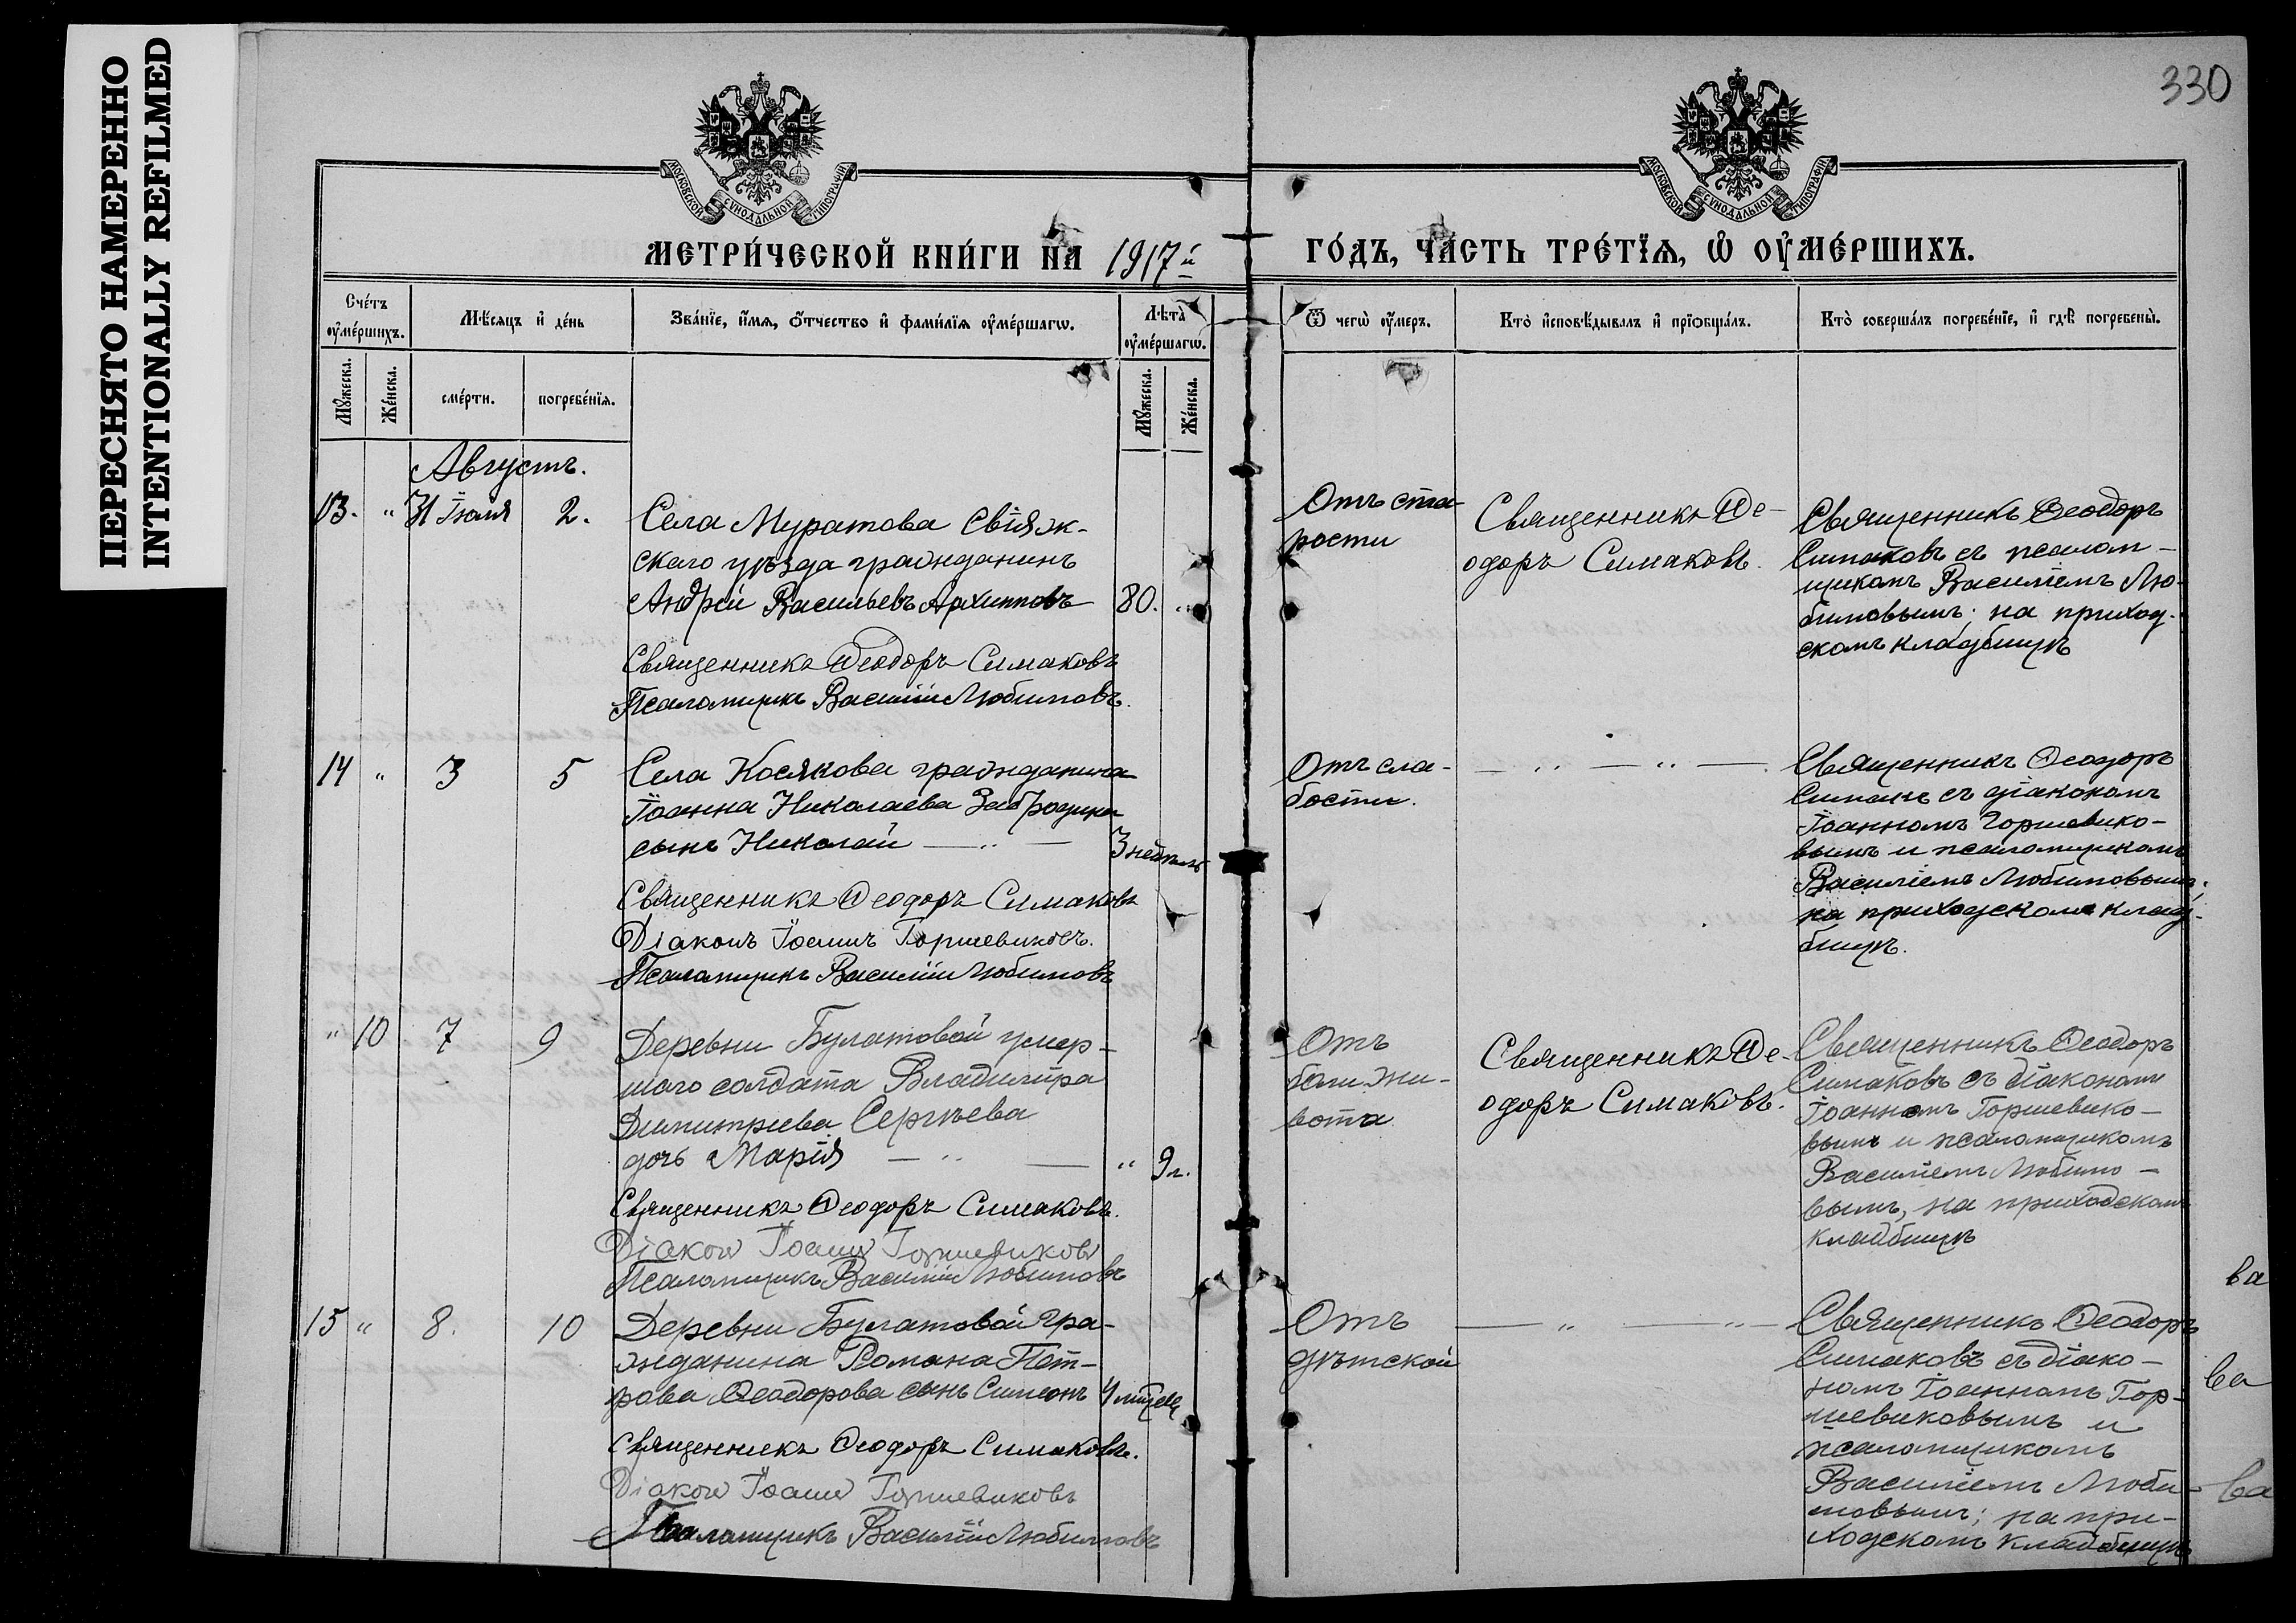 ПЕРЕСНЯТО НАМЕРЕННО
INTENTIONALLY REFILMED
330
МОСКОВСКОЙ СѴНОДАЛЬНОЙ ТИПОГРАФІИ
МОСКОВСКОЙ СѴНОДАЛЬНОЙ ТИПОГРАФІИ
МЕТРИ́ЧЕСКОЙ КНИ́ГИ НА 1917й
ГО́ДЪ, ЧА́СТЬ ТРЕ́ТЇѦ, Ѡ҆ ОУ҆МЕ́РШИХЪ.
Сче́тъ оу҆ме́ршихъ.
Мѣ́сяцъ и҆ де́нь
Зва́нїе, и҆́мя, ѻ҆́тчество и҆ фами́лїя оу҆ме́ршагѡ.
Лѣта̀ оу҆ме́ршагѡ.
Ѿ чегѡ̀ оу҆́меръ.
Кто̀ и҆сповѣ́дывалъ и҆ прїѻбща́лъ.
Кто̀ соверша́лъ погребе́нїе, и҆ гдѣ̀ погребены̀.
Мꙋ́жеска.
Же́нска.
сме́рти.
погребе́нїя.
Мꙋ́жеска.
Же́нска.
Августъ.
13. " 31 Іюля 2.
Села Муратова Свіяж-
скаго уѣзда гражданинъ
Андрей Васильевъ Архиповъ 80. "
Священникъ Ѳеодоръ Симаковъ
Псаломщикъ Василій Любимовъ.
Отъ ста-
рости
Священникъ Ѳе-
одоръ Симаковъ.
Священникъ Ѳеодоръ
Симаковъ съ псалом-
щикомъ Василіемъ Лю-
бимовымъ; на приход-
скомъ кладбищѣ
14 " 3 5
Села Косякова гражданина
Іоанна Николаева
сынъ Николай — " — 3 недѣль
Священникъ Ѳеодоръ Симаковъ
Діаконъ Іоаннъ Горшевиковъ.
Псаломщикъ Василій Любимовъ
Отъ сла-
бости.
— " — " —
Священникъ Ѳеодоръ
Симакъ съ діакономъ
Іоанномъ Горшевико-
вымъ и псаломщикомъ
Василіемъ Любимовымъ;
на приходскомъ клад-
бищѣ.
" 10 7 9
Деревни Булатовой умер-
шаго солдата Владиміра
Димитріева Сергѣева
дочь Марія — " — " 9 л.
Священникъ Ѳеодоръ Симаковъ.
Діаконъ Іоаннъ Горшевиковъ
Псаломщикъ Василій Любимовъ
Отъ
боли жи-
вота
Священникъ Ѳе-
одоръ Симаковъ.
Священникъ Ѳеодоръ
Симаковъ съ діакономъ
Іоанномъ Горшевико-
вымъ и псаломщикомъ
Василіемъ Любимо-
вымъ, на приходскомъ
кладбищѣ
ва
15 " 8. 10
Деревни Булатовой гра-
жданина Романа Пет-
рова Ѳеодорова сынъ Симеонъ 4
Священникъ Ѳеодоръ Симаковъ.
Діаконъ Іоаннъ Горшевиковъ
Псаломщикъ Василій Любимовъ
Отъ
дѣтской
— " — " —
Священникъ Ѳеодоръ
Симаковъ съ діако-
номъ Іоанномъ Гор-
шевиковымъ и
псаломщикомъ
Василіемъ Люби-
мовымъ; на при-
ходскомъ кладбищѣ
ва
ва